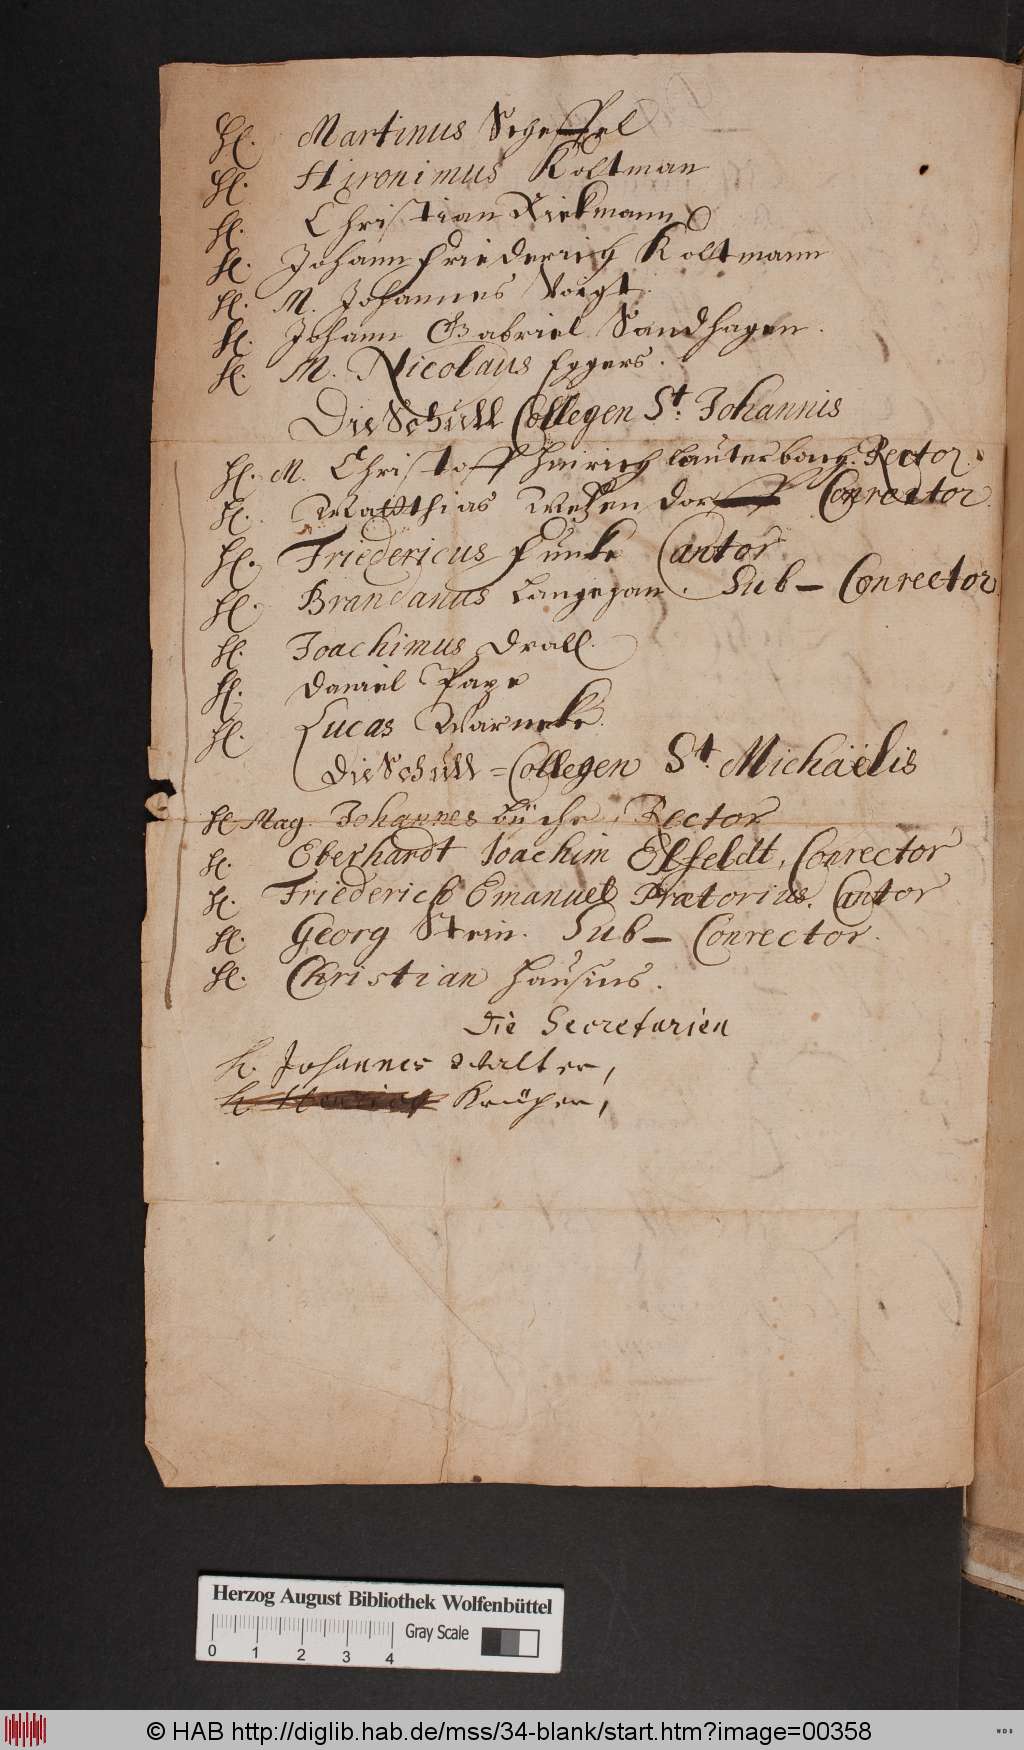 H. Martinus Scheffel
H. Hironimus Koltman
H. Christian Riekmann
H. Johann Friederich Koltmann
H. M. Johannes Voigt.
H. Johann Gabriel Sandhagen.
H. M. Nicolaus Eggers.
Die Schull Collegen St. Johannis
H. M. Christoff Heinrich Lauterbach. Rector.
H. Matthias Metzendorff Conrector.
H. Friedericus Funke Cantor
H. Brandanus Langejan. Sub- Conrector.
H. Joachimus Drall.
H. Daniel Pape
H. Lucas Warneke.
Die Schull = Collegen St. Michaëlis
H. Mag. Johannes Büche, Rector
H. Eberhardt Joachim Elfeldt, Conrector
H. Friederich Emanuel Prætorius. Cantor
H. Georg Stein. Sub- Conrector.
H. Christian Hausius.
Die Secretarien
H. Johannes Walter,
H. Krüger,
Herzog August Bibliothek Wolfenbüttel
Gray Scale
0 1 2 3 4
© HAB http://diglib.hab.de/mss/34-blank/start.htm?image=00358
WDB